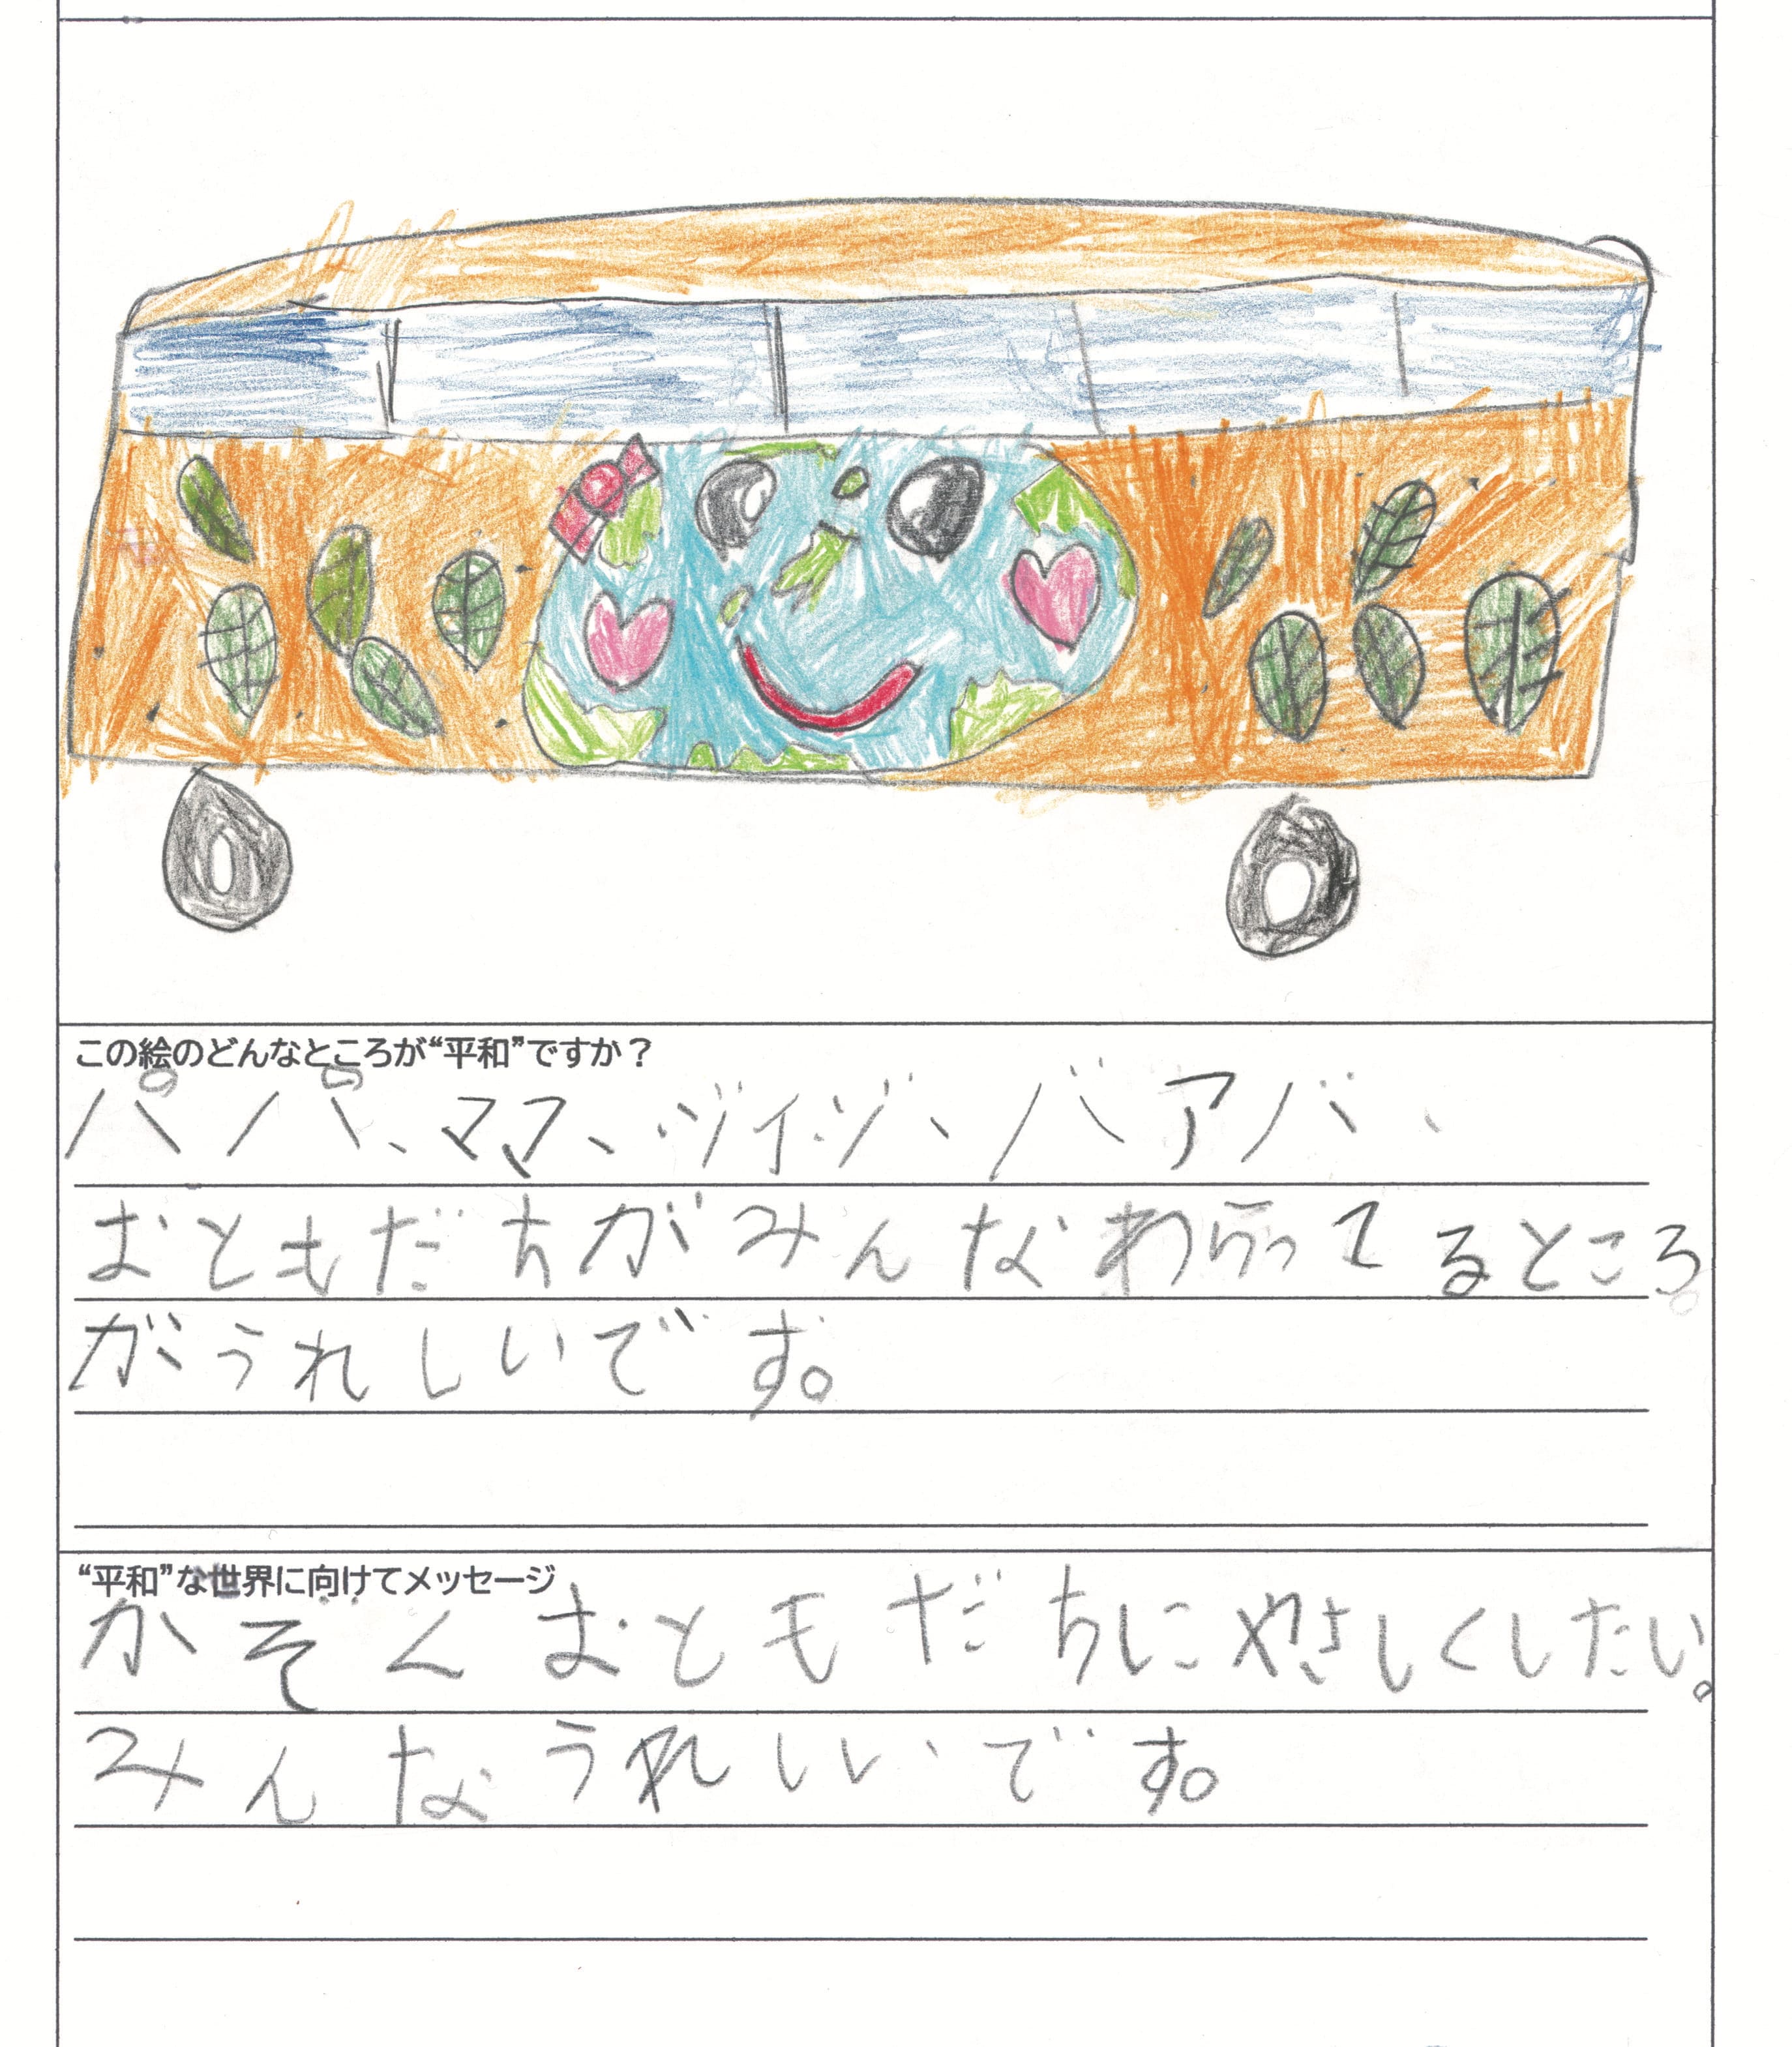 この絵のどんなところが“平和”ですか？
パパ、ママ、ジイジ、バアバ、
おともだちがみんなわらってるところ
がうれしいです。
“平和”な世界に向けてメッセージ
かぞくおともだちにやさしくしたい。
みんなうれしいです。